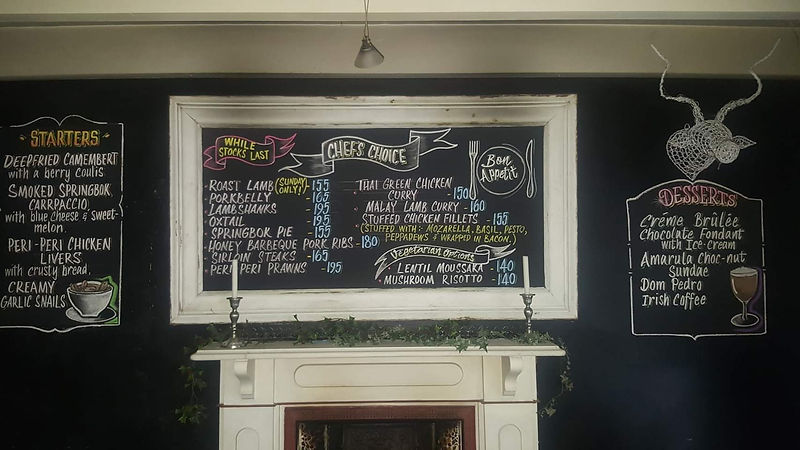 STARTERS
DEEPFRIED CAMEMBERT
with a berry coulis
SMOKED SPRINGBOK
CARRPACCIO,
with blue cheese & sweet-
melon.
PERI-PERI CHICKEN
LIVERS
with crusty bread,
CREAMY
GARLIC SNAILS
WHILE
STOCKS LAST
CHEFS CHOICE
ROAST LAMB (SUNDAY ONLY!) 155
PORKBELLY - 165
LAMBSHANKS - 195
OXTAIL - 195
SPRINGBOK PIE - 155
HONEY BARBEQUE PORK RIBS - 180
SIRLOIN STEAKS - 165
PERI PERI PRAWNS - 195
THAI GREEN CHICKEN
CURRY - 150
MALAY LAMB CURRY - 160
STUFFED CHICKEN FILLETS - 155
(STUFFED WITH:- MOZARELLA, BASIL, PESTO,
PEPPADEWS & WRAPPED IN BACON.)
Vegetarian Options
LENTIL MOUSSAKA - 140
MUSHROOM RISOTTO - 140
Bon
Appetit
DESSERTS
Crème Brûlée
Chocolate Fondant
with Ice-cream
Amarula choc-nut
Sundae
Dom Pedro
Irish Coffee